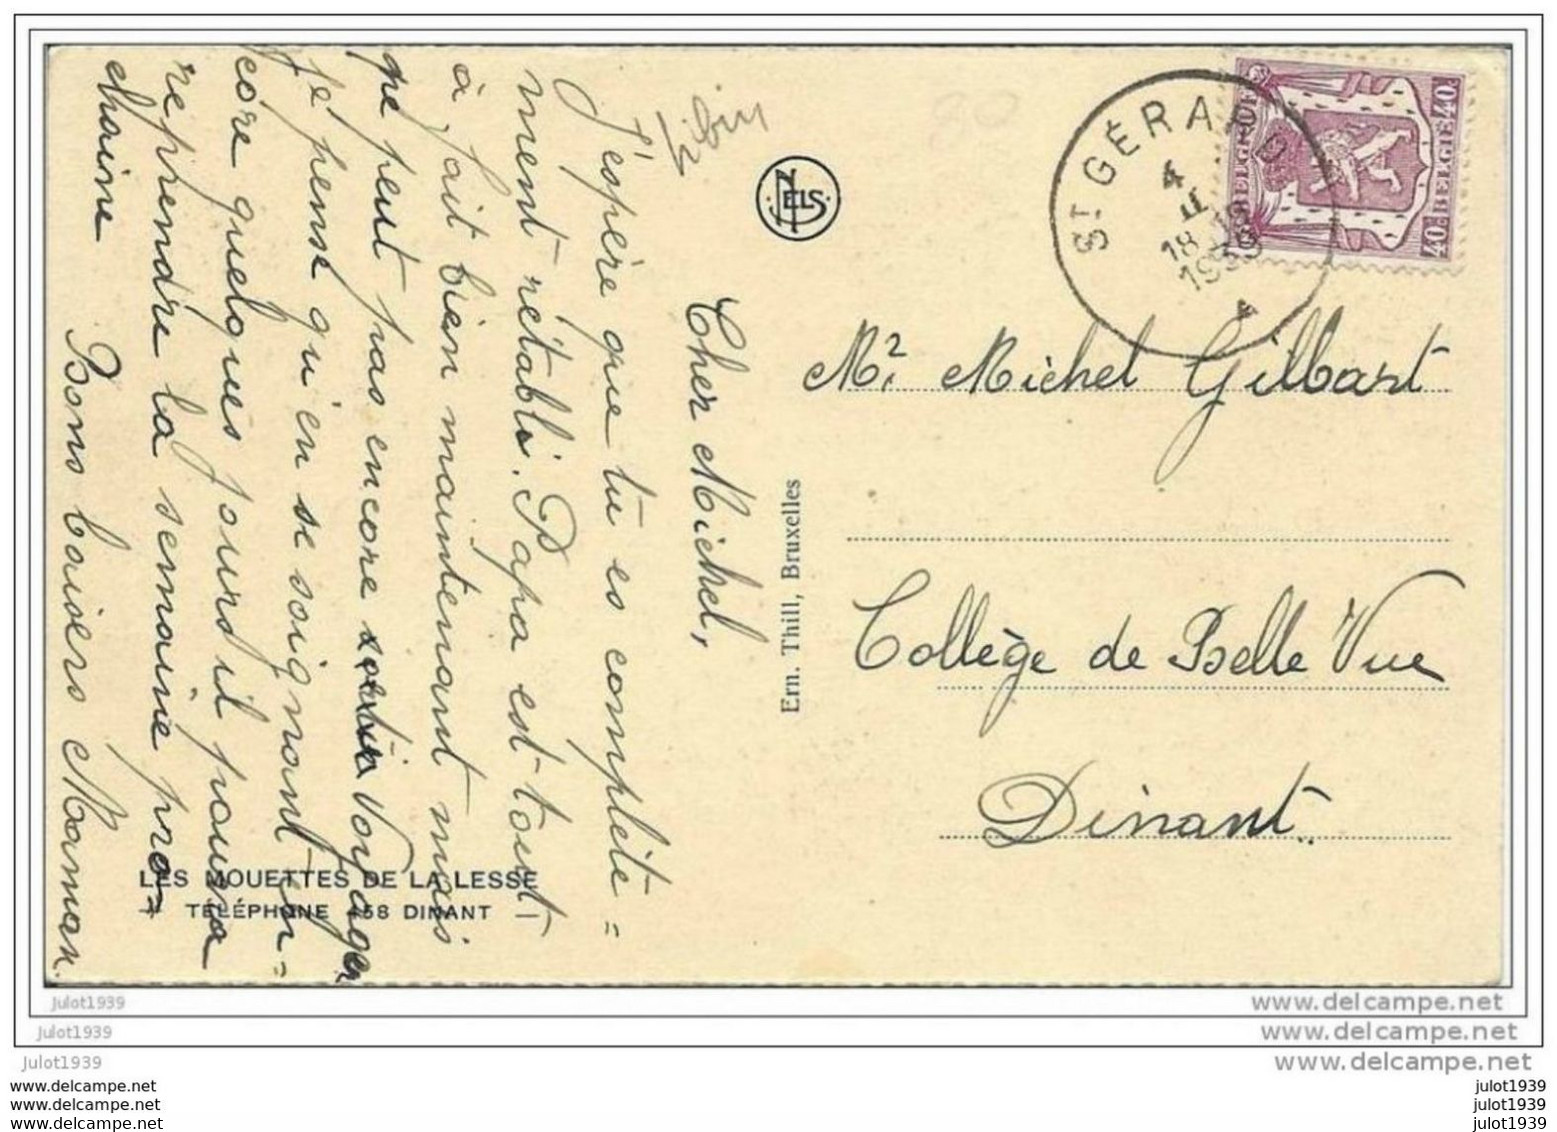 Libin
80
Cher Michel,
J'espère que tu es complète=
ment rétabli. Papa est tout
à fait bien maintenant mais
ne peut pas encore voyager
je pense qu'en se soignant en=
core quelques jours il pourra
reprendre la semaine pro=
chaine
Bons baisers Maman.
LES MOUETTES DE LA LESSE
TÉLÉPHONE 458 DINANT —
NELS
Ern. Thill, Bruxelles
ST GÉRARD
4
II
18
BELGIQUE BELGIE
40c 40c
Mr Michel Gilbart
Collège de Belle Vue
Dinant
Julot1939
Julot1939
Julot1939
www.delcampe.net
www.delcampe.net
www.delcampe.net
www.delcampe.net
www.delcampe.net
www.delcampe.net
julot1939
julot1939
julot1939